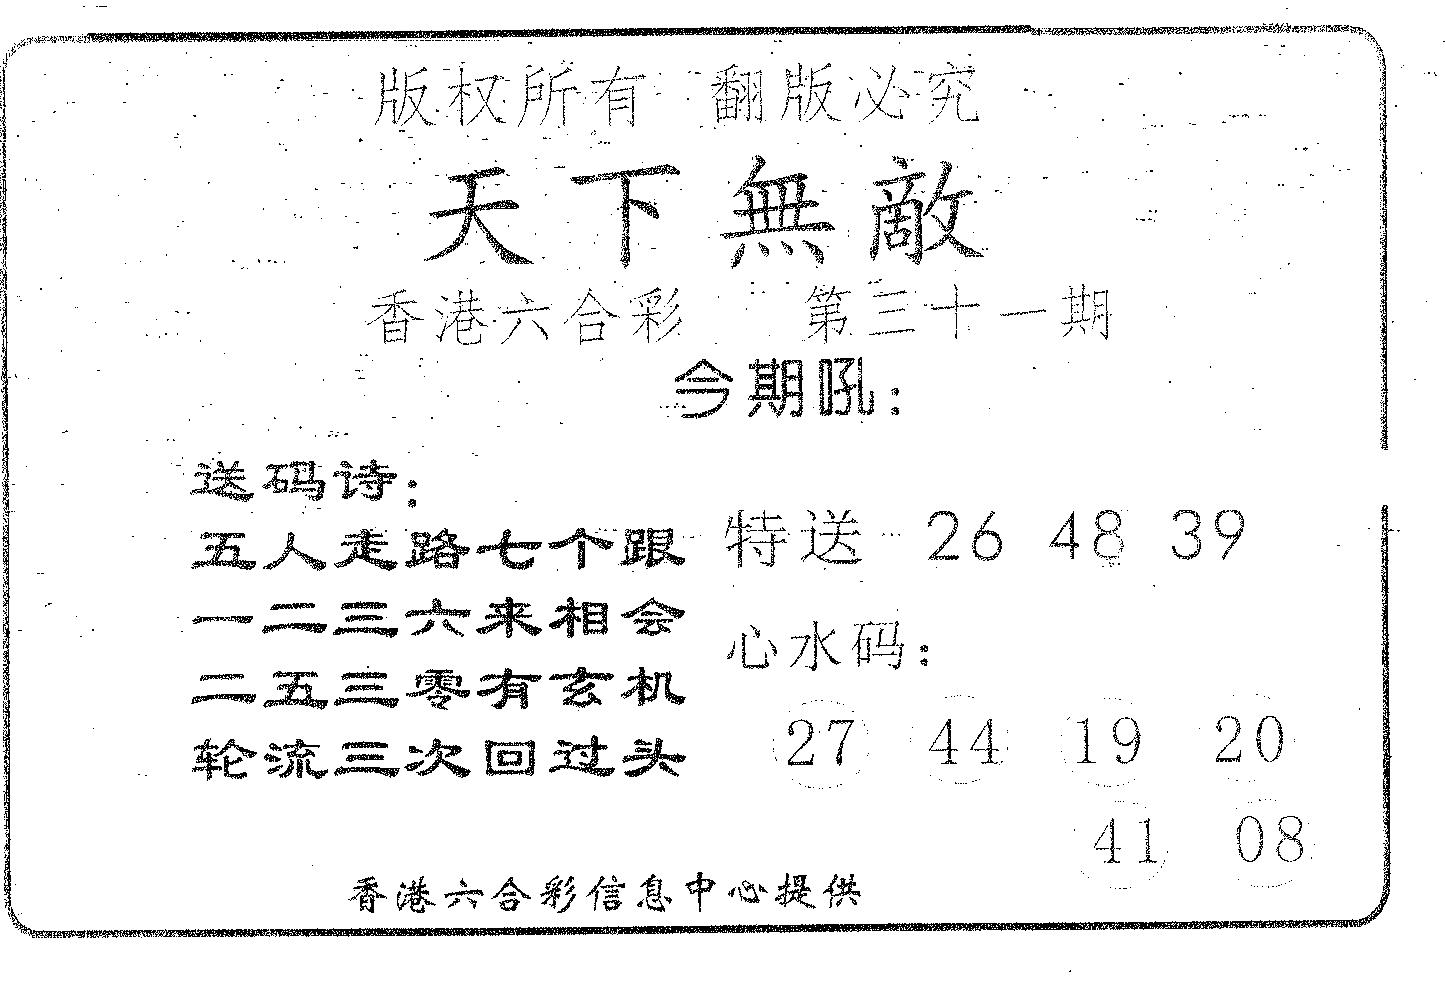 版权所有 翻版必究
天下無敵
香港六合彩 第三十一期
今期吼：
送码诗：
五人走路七个跟
一二三六来相会
二五三零有玄机
轮流三次回过头
特送 26 48 39
心水码：
27 44 19 20
41 08
香港六合彩信息中心提供